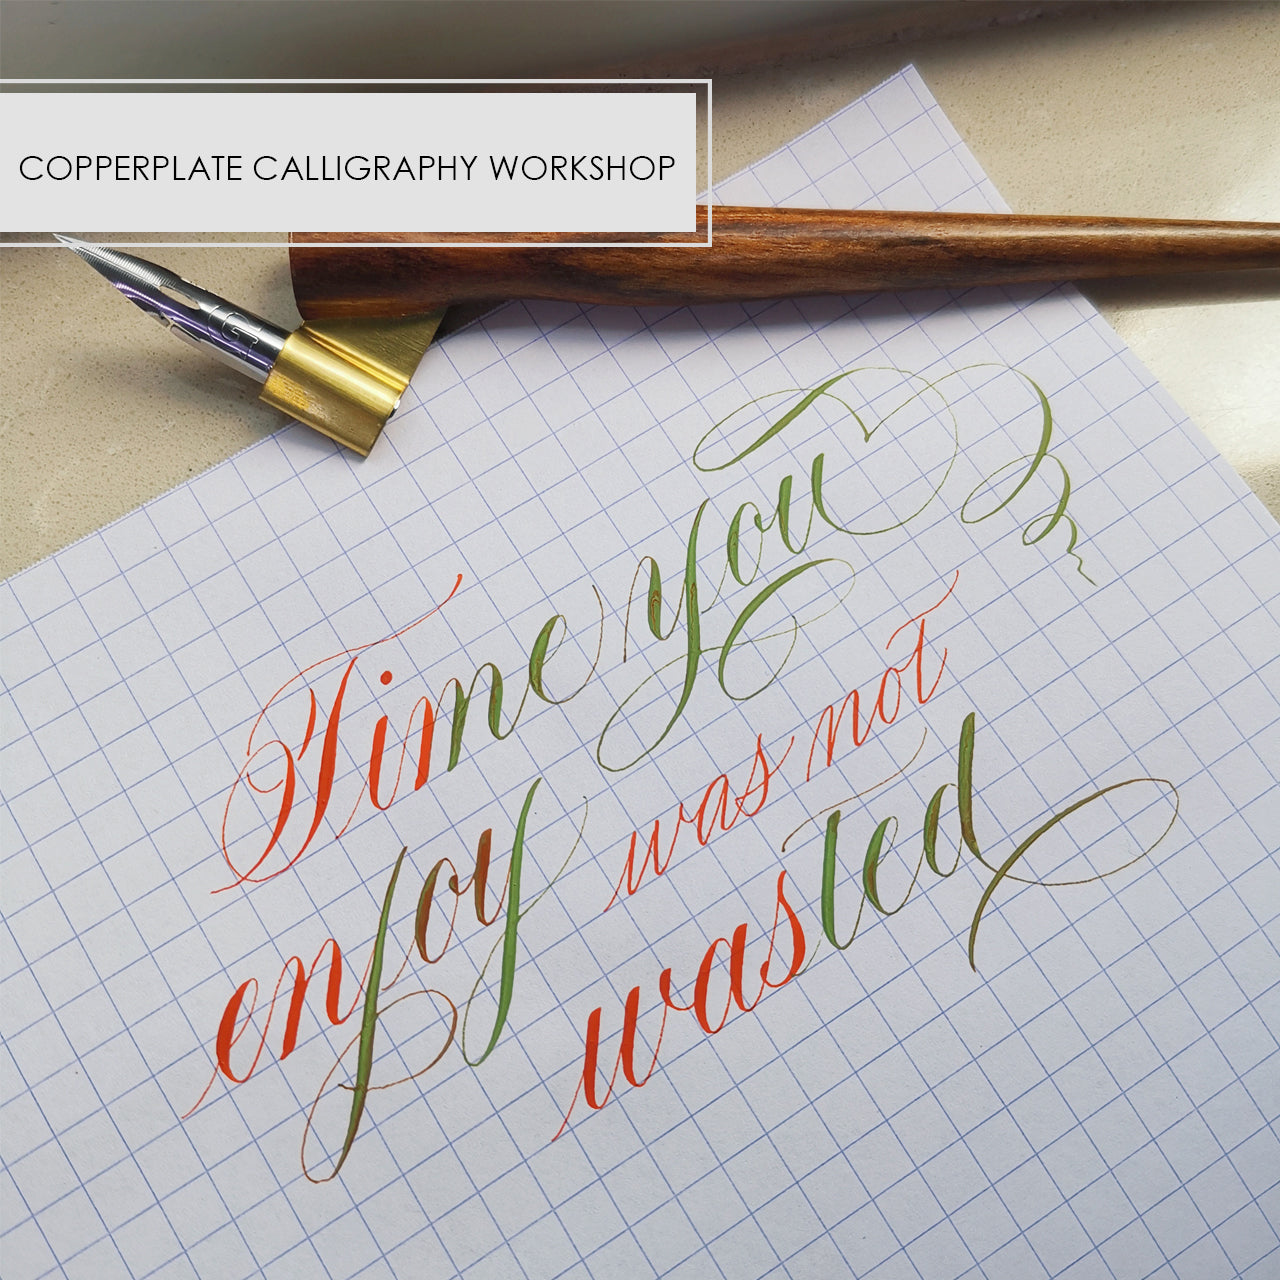 COPPERPLATE CALLIGRAPHY WORKSHOP
G
Time you
enjoy was not
wasted